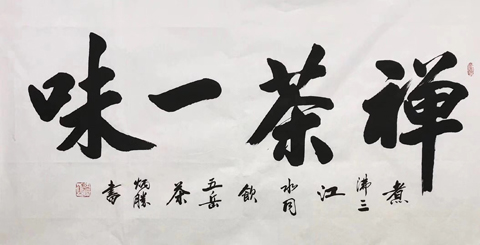 禅茶一味
煮沸三江水同飲五岳茶
炳勝書